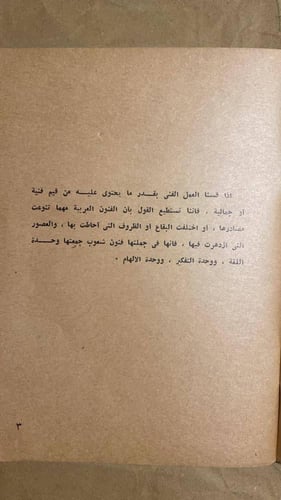 اذا قسنا العمل الفنى بقدر ما يحتوى عليه من قيم فنية
او جمالية ، فاننا نستطيع القول بان الفنون العربية مهما تنوعت
مصادرها ، او اختلفت البقاع او الظروف التى احاطت بها ، والعصور
التى ازدهرت فيها ، فانها فى جملتها فنون شعوب جمعتها وحدة
اللغة ، ووحدة التفكير ، ووحدة الالهام ٠
٣